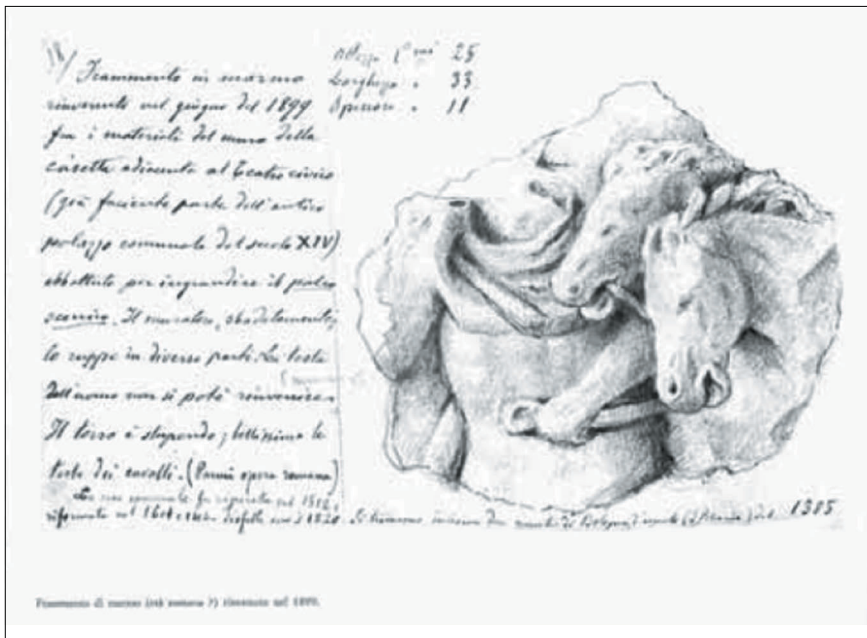 Frammento in marmo
rinvenuto nel giugno del 1899
fra i materiali del muro della
casetta adiacente al Teatro civico
(già faciente parte dell'antico
palazzo comunale del secolo XIV)
abbattuto per ingrandire il palco
scenico. Il muratore, sbadatamente,
lo ruppe in diverse parti. La testa
dell'uomo non si potè rinvenire.
Il torso è stupendo, bellissime le
teste dei cavalli. (Parmi opera romana)
La casa comunale fu riparata nel 1512,
riformata nel 1601 e disfatta 1820. Si trovarono monete di Bologna 1385
Altezza C.mi 25
Larghezza " 33
Spessore " 11
Frammento di marmo (età romana ?) rinvenuto nel 1899.